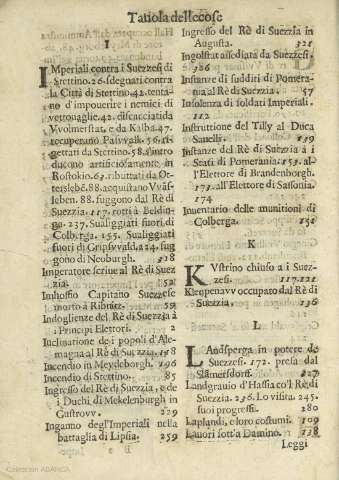 Tauola dell ecose
I
IMperiali contra i Suezzesi di
Stettino. 26. sdegnati contra
la Città di Stettino. 42. tenta-
no d'impouerire i nemici di
vettouaglie. 42. discacciati da
Vvolmerstat, e da Kalba. 47.
recuperano
gettati da Stertino. 58. intro
ducono artificiosamente, in
Rostokio. 63. ributtati da Ot-
terslebé. 88. acquistano
leben. 88. fuggono dal Rè di
Suezzia. 117. rotti à Beldin-
ga. 237. Sualiggiati fuori di
Colberga. 155. Sualiggiati
fuori di Gripsvvald, 224. fug-
gono di Neoburgh. 328
Imperatore scriue al Rè di Suez
zia. 52
Imhossio Capitano Suezzese
morto à Ribnitz. 59
Indoglienze del Rè di Suezzia à
i Principi Elettori. 2
Inclinatione de i popoli d'Ale-
magna al Rè di Suezzia. 158
Incendio in Meydeborgh. 196
Incendio di Stettino. 85
Ingresso del Rè di Suezzia, e de
i Duchi di Mekelenburgh in
Gustrovv. 229
Inganno degl'Imperiali nella
battaglia di Lipsia. 259
Ingresso del Rè di Suezzia in
Augusta. 321
Ingolstat assediata da Suezzesi.
326
Instanze di sudditi di Pomera-
nia al Rè di Suezzia. 57
Insolenza di soldati Imperiali.
112
Instruttione del Tilly al Duca
Sauelli. 119
Instanze del Rè di Suezzia à i
Stati di Pomerania. 153. al-
l'Elettore di Brandenborgh.
171. all'Elettore di Sassonia.
174
Inuentario delle munitioni di
Colberga. 152
K
KVstrino chiuso a i Suez-
zesi. 117.121
Kleepenavv occupato dal Rè di
Suezzia. 136
L
LAndsperga in potere de
Suezzesi. 172. presa dal
Slamersdorf. 227
Landgrauio d'Hassia co'l Rè di
Suezzia. 236. Lo visita. 245.
suoi progressi. 280
Laplandi, e loro costumi. 109
Lauori sott'a Damino. 138
Leggi